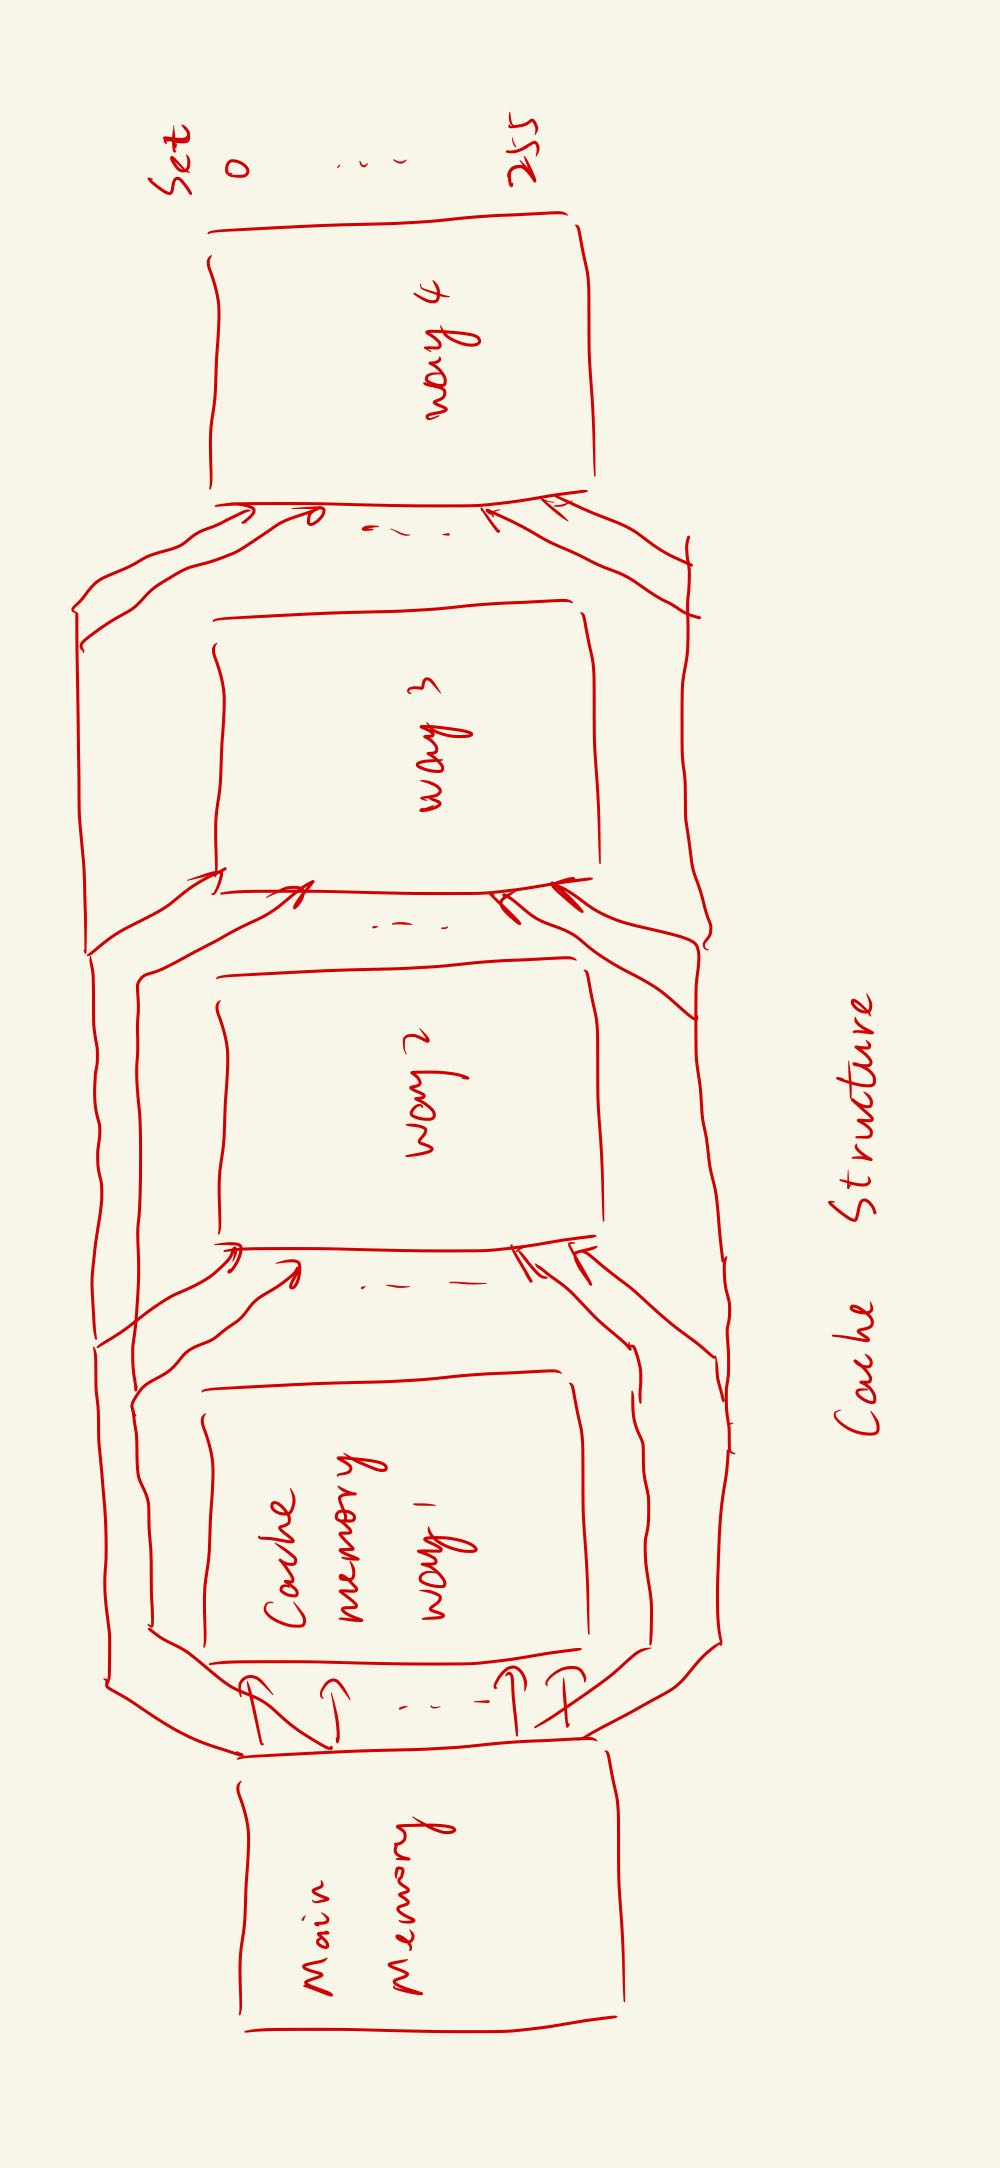 Main
Memory
Cache
memory
way 1
way 2
way 3
way 4
Set
0
⋮
255
Cache Structure